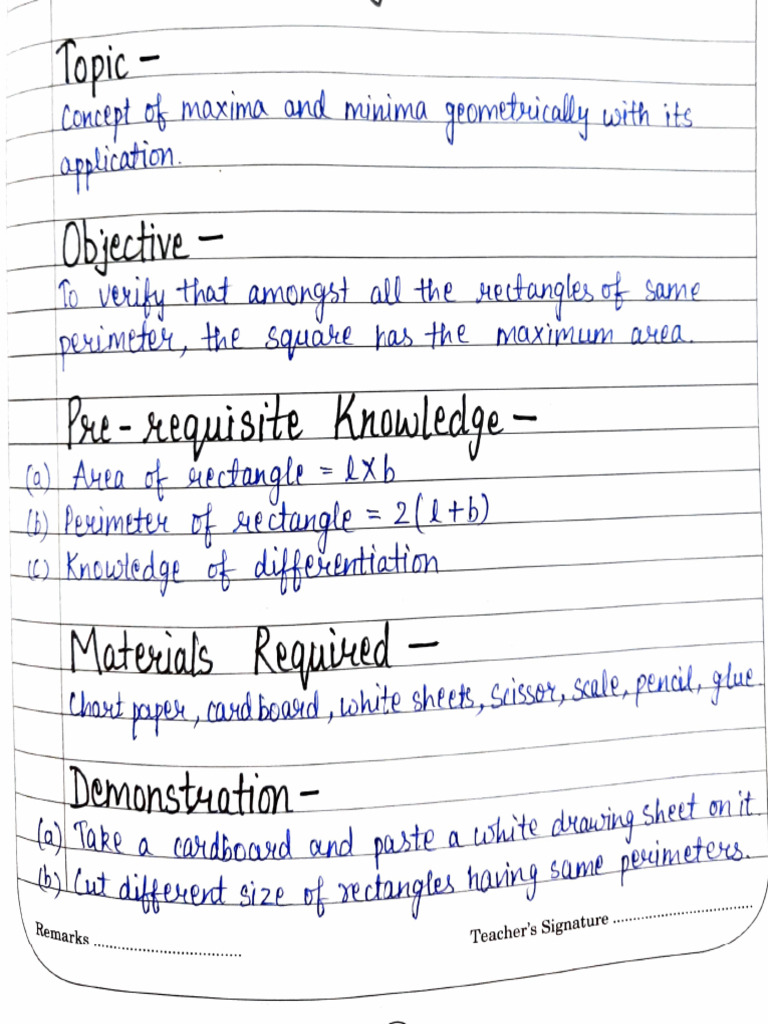 Topic -
Concept of maxima and minima geometrically with its
application.
Objective -
To verify that amongst all the rectangles of same
perimeter, the square has the maximum area.
Pre-requisite Knowledge -
(a) Area of rectangle = l×b
(b) Perimeter of rectangle = 2(l+b)
(c) Knowledge of differentiation
Materials Required -
Chart paper, cardboard, white sheets, scissor, scale, pencil, glue.
Demonstration -
(a) Take a cardboard and paste a white drawing sheet on it.
(b) Cut different size of rectangles having same perimeters.
Remarks .................................... Teacher's Signature ....................................